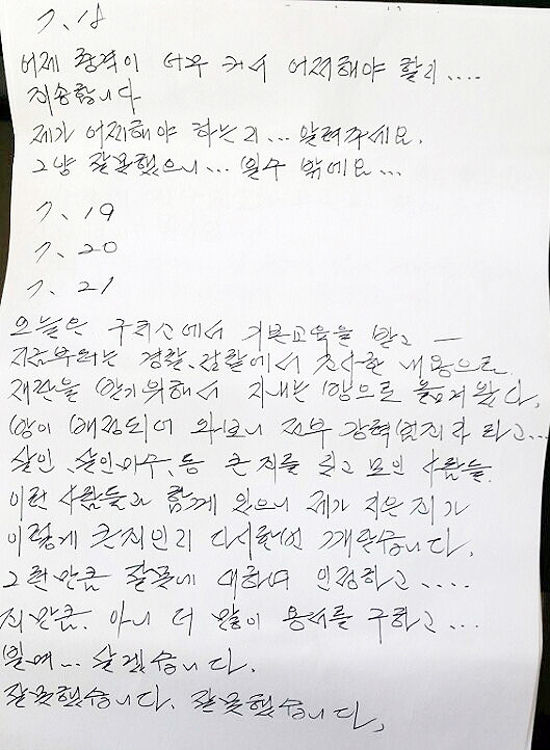 7. 18
어제 충격이 너무 커서 어찌해야 할지....
죄송합니다
제가 어찌해야 하는지... 알려주세요.
그냥 잘못했으니... 빌수 밖에요...
7. 19
7. 20
7. 21
오늘은 구치소에서 기본교육을 받고 ―
지금부터는 경찰, 검찰에서 조사한 내용으로
재판을 받기위해서 지내는 방으로 옮겨왔다,
방이 배정되어 와보니 전부 강력범죄자 라고...
살인, 살인미수, 등 큰 죄를 짓고 모인 사람들.
이런 사람들과 함께 있으니 제가 지은 죄가
이렇게 큰죄인지 다시한번 깨닫습니다,
그런만큼 잘못에 대하여 인정하고.....
죄만큼. 아니 더 많이 용서를 구하고...
빌며... 살겠습니다.
잘못했습니다. 잘못했습니다,